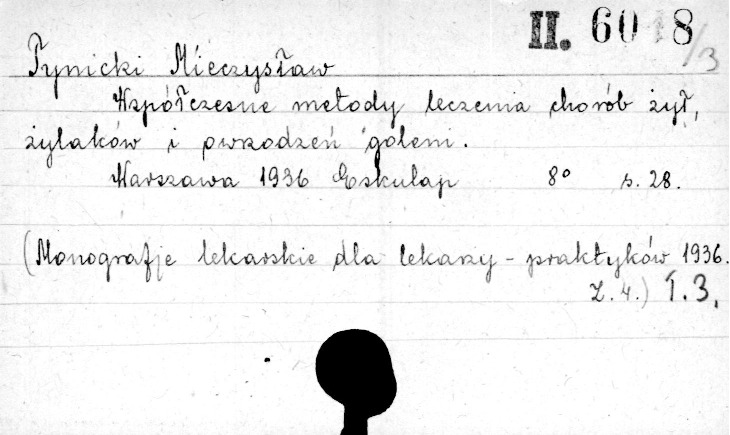 II. 6018/3
Tynicki Mieczysław
Współczesne metody leczenia chorób żył,
żylaków i owrzodzeń goleni.
Warszawa 1936 Eskulap 8° s. 28.
(Monografje lekarskie dla lekarzy-praktyków 1936.
Z. 4.) T.3.